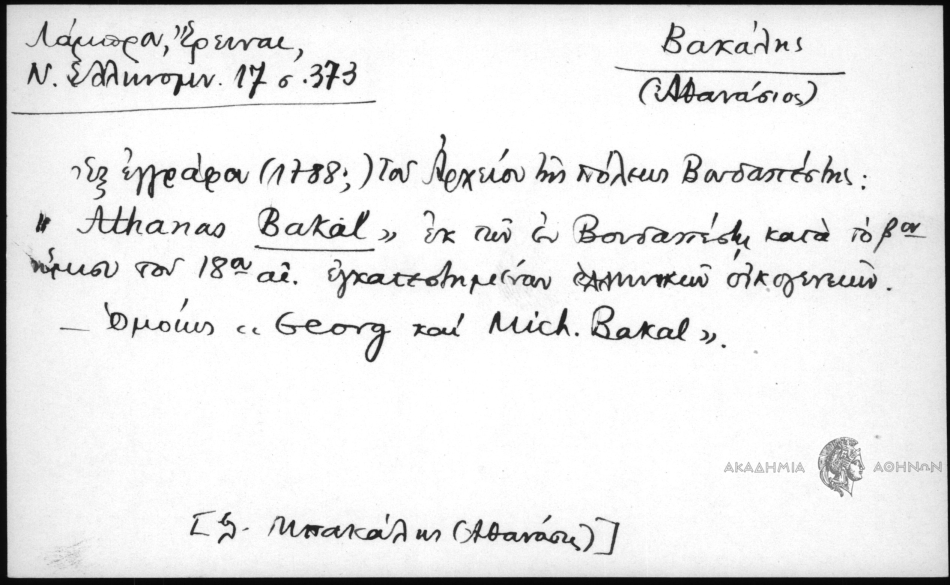 Λάμπρου, Ἔρευναι,
Ν. Ἑλληνομν. 17 σ. 373
Βακάλης
(Ἀθανάσιος)
Ἐξ ἐγγράφου (1788;) τοῦ Ἀρχείου τῆς πόλεως Βουδαπέστης:
" Athanas Bakal » ἐκ τῶν ἐν Βουδαπέστῃ κατὰ τὸ βον
ἥμισυ τοῦ 18ου αἰ. ἐγκατεστημένων ἑλληνικῶν οἰκογενειῶν.
— Ὁμοίως «Georg καί Mich. Bakal».
ΑΚΑΔΗΜΙΑ ΑΘΗΝΩΝ
Μπακάλης (Ἀθανάσης)]